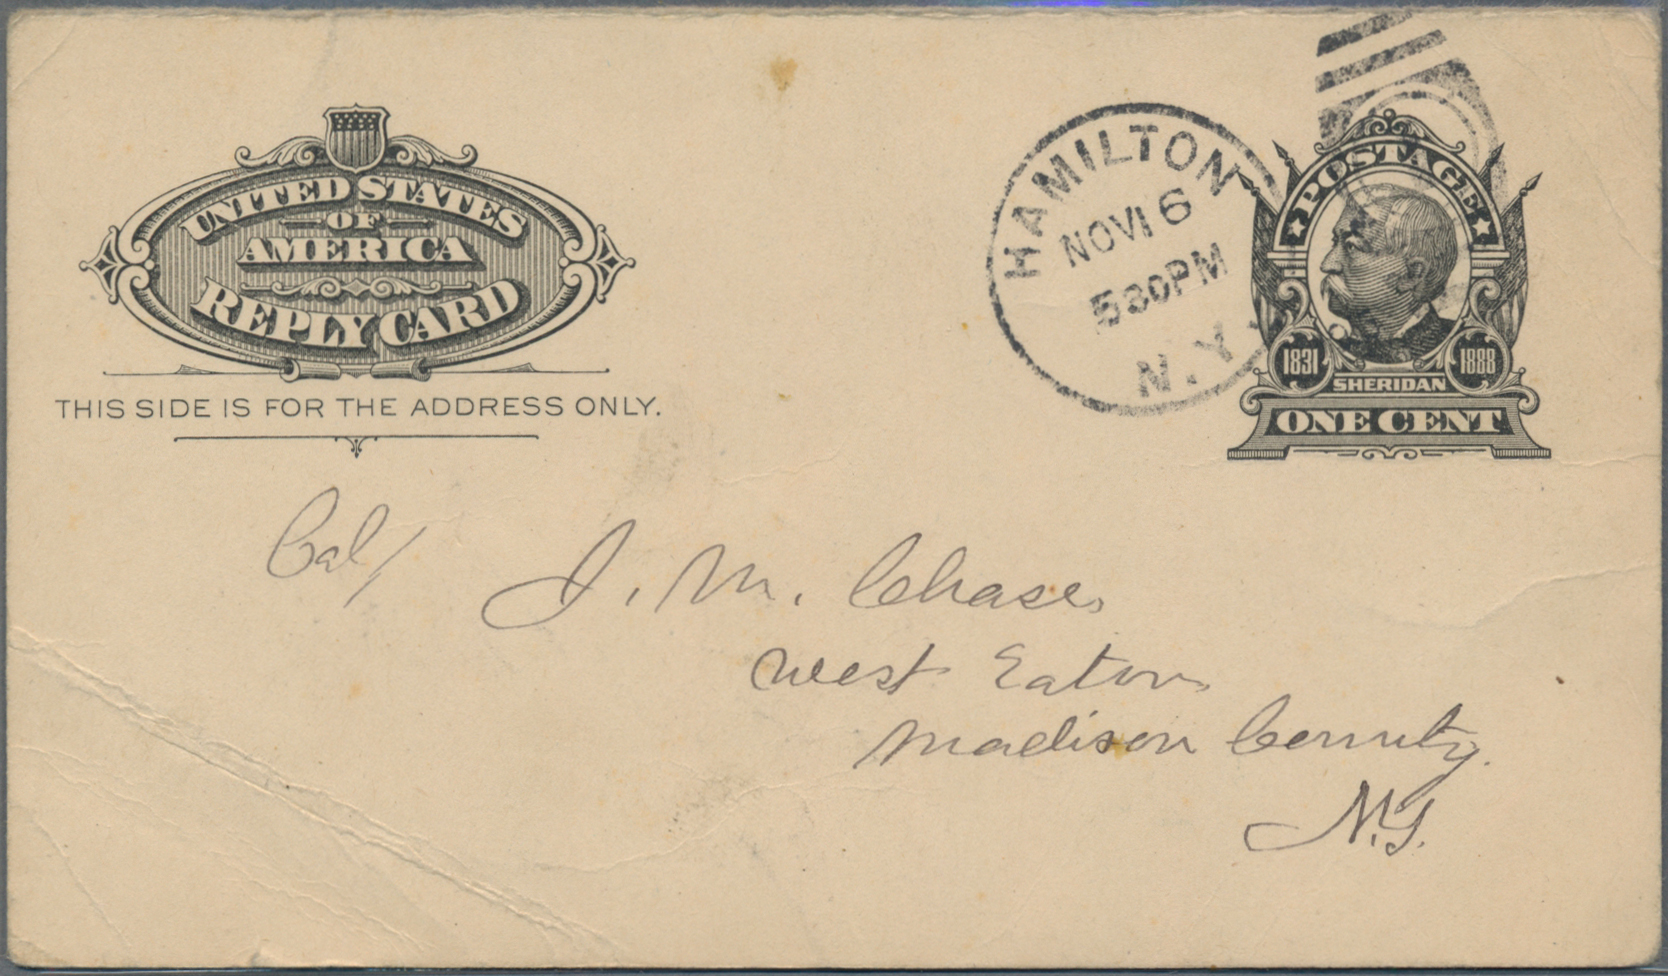 UNITED STATES
OF
AMERICA
REPLY CARD
THIS SIDE IS FOR THE ADDRESS ONLY.
HAMILTON
NOV 16
530PM
N.Y.
POSTAGE
1831 1888
SHERIDAN
ONE CENT
Cal/
J. M. Chase,
West Eaton,
Madison County.
N.Y.